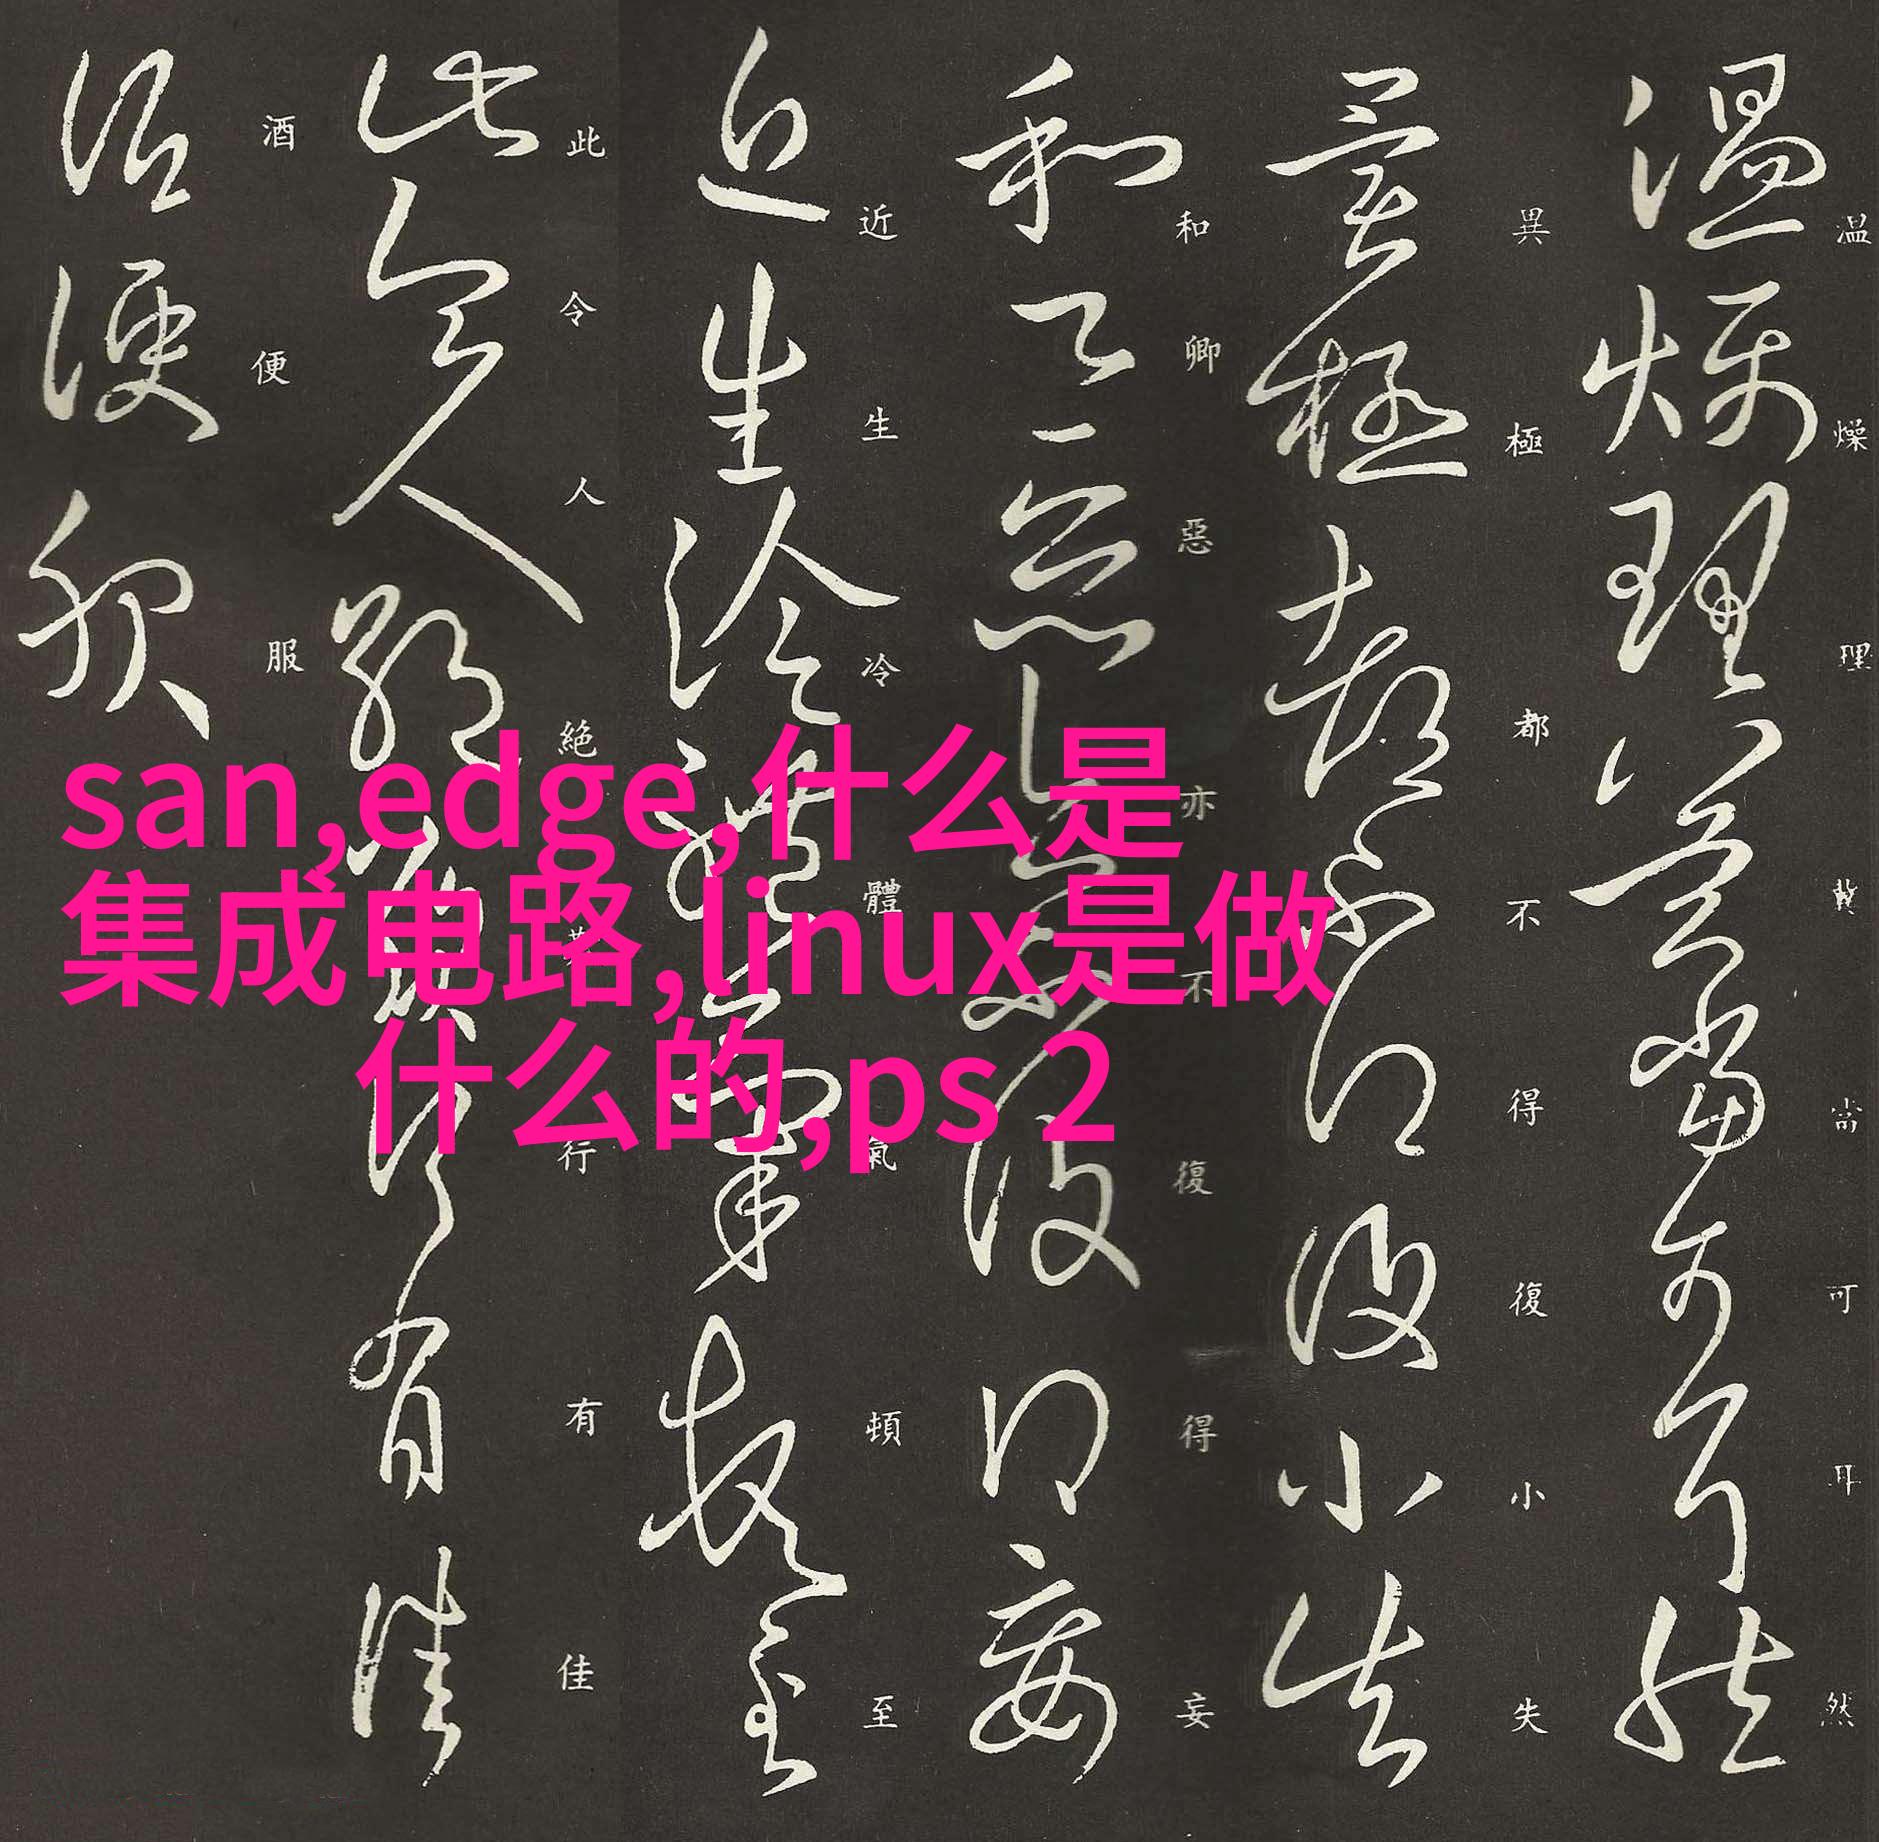 温燥理冀當可耳然
異極都不得復小失
和卿惡亦不復得妄
近生冷體氣頓至
此令人絶行有佳
酒便服
san,edge,什么是
集成电路,linux是做
什么的,ps 2